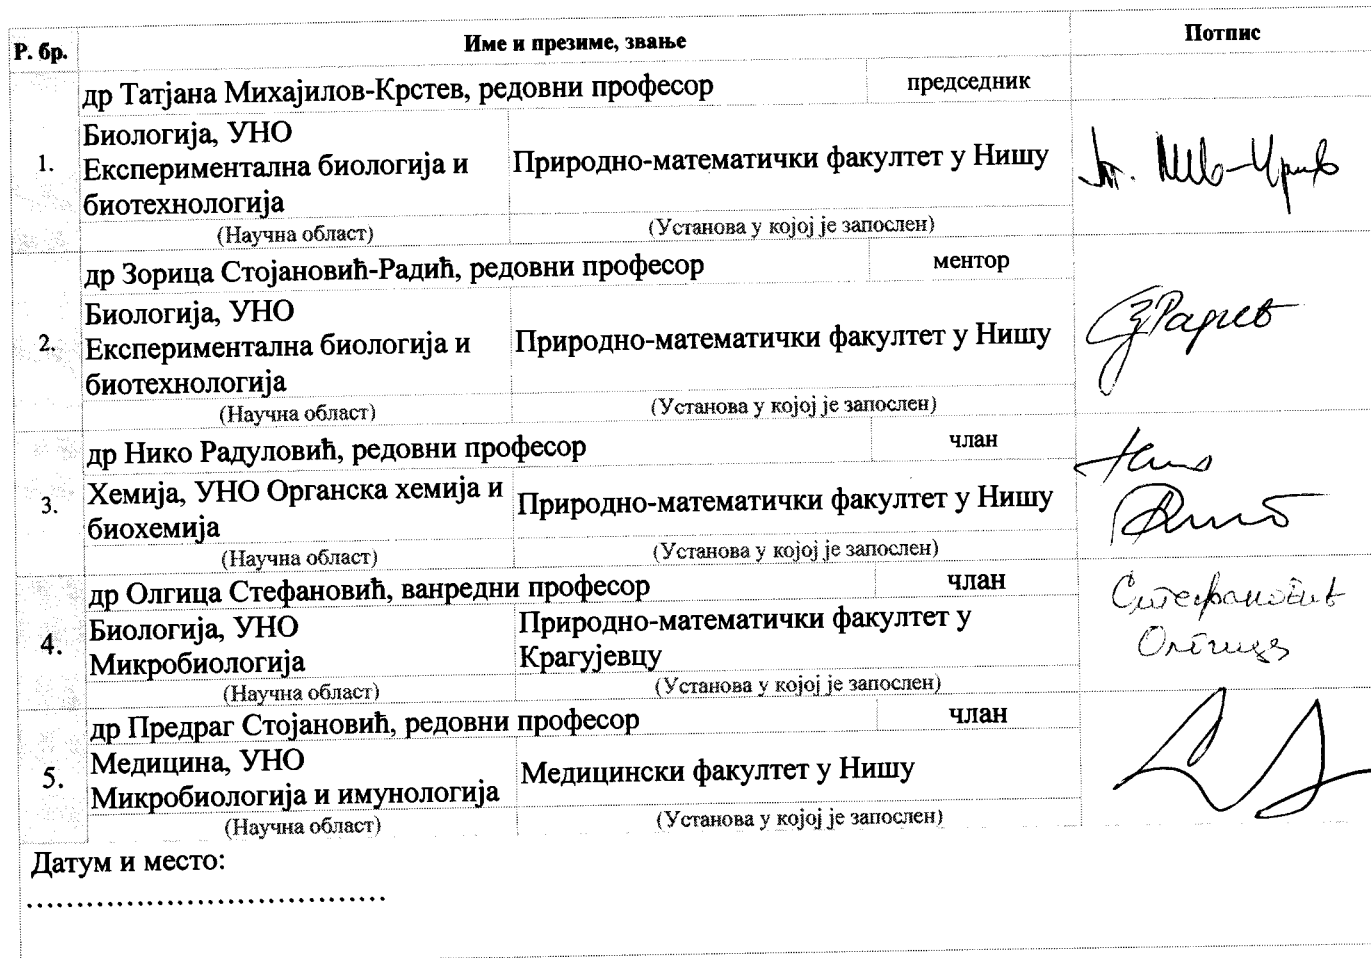 Р. бр. Име и презиме, звање Потпис
др Татјана Михајилов-Крстев, редовни професор председник
1.
Биологија, УНО
Експериментална биологија и
биотехнологија
Природно-математички факултет у Нишу
(Научна област) (Установа у којој је запослен)
др Зорица Стојановић-Радић, редовни професор ментор
2.
Биологија, УНО
Експериментална биологија и
биотехнологија
Природно-математички факултет у Нишу
(Научна област) (Установа у којој је запослен)
др Нико Радуловић, редовни професор члан
3.
Хемија, УНО Органска хемија и
биохемија
Природно-математички факултет у Нишу
(Научна област) (Установа у којој је запослен)
др Олгица Стефановић, ванредни професор члан
4.
Биологија, УНО
Микробиологија
Природно-математички факултет у
Крагујевцу
Стефановић
Олгица
(Научна област) (Установа у којој је запослен)
др Предраг Стојановић, редовни професор члан
5.
Медицина, УНО
Микробиологија и имунологија
Медицински факултет у Нишу
(Научна област) (Установа у којој је запослен)
Датум и место:
....................................